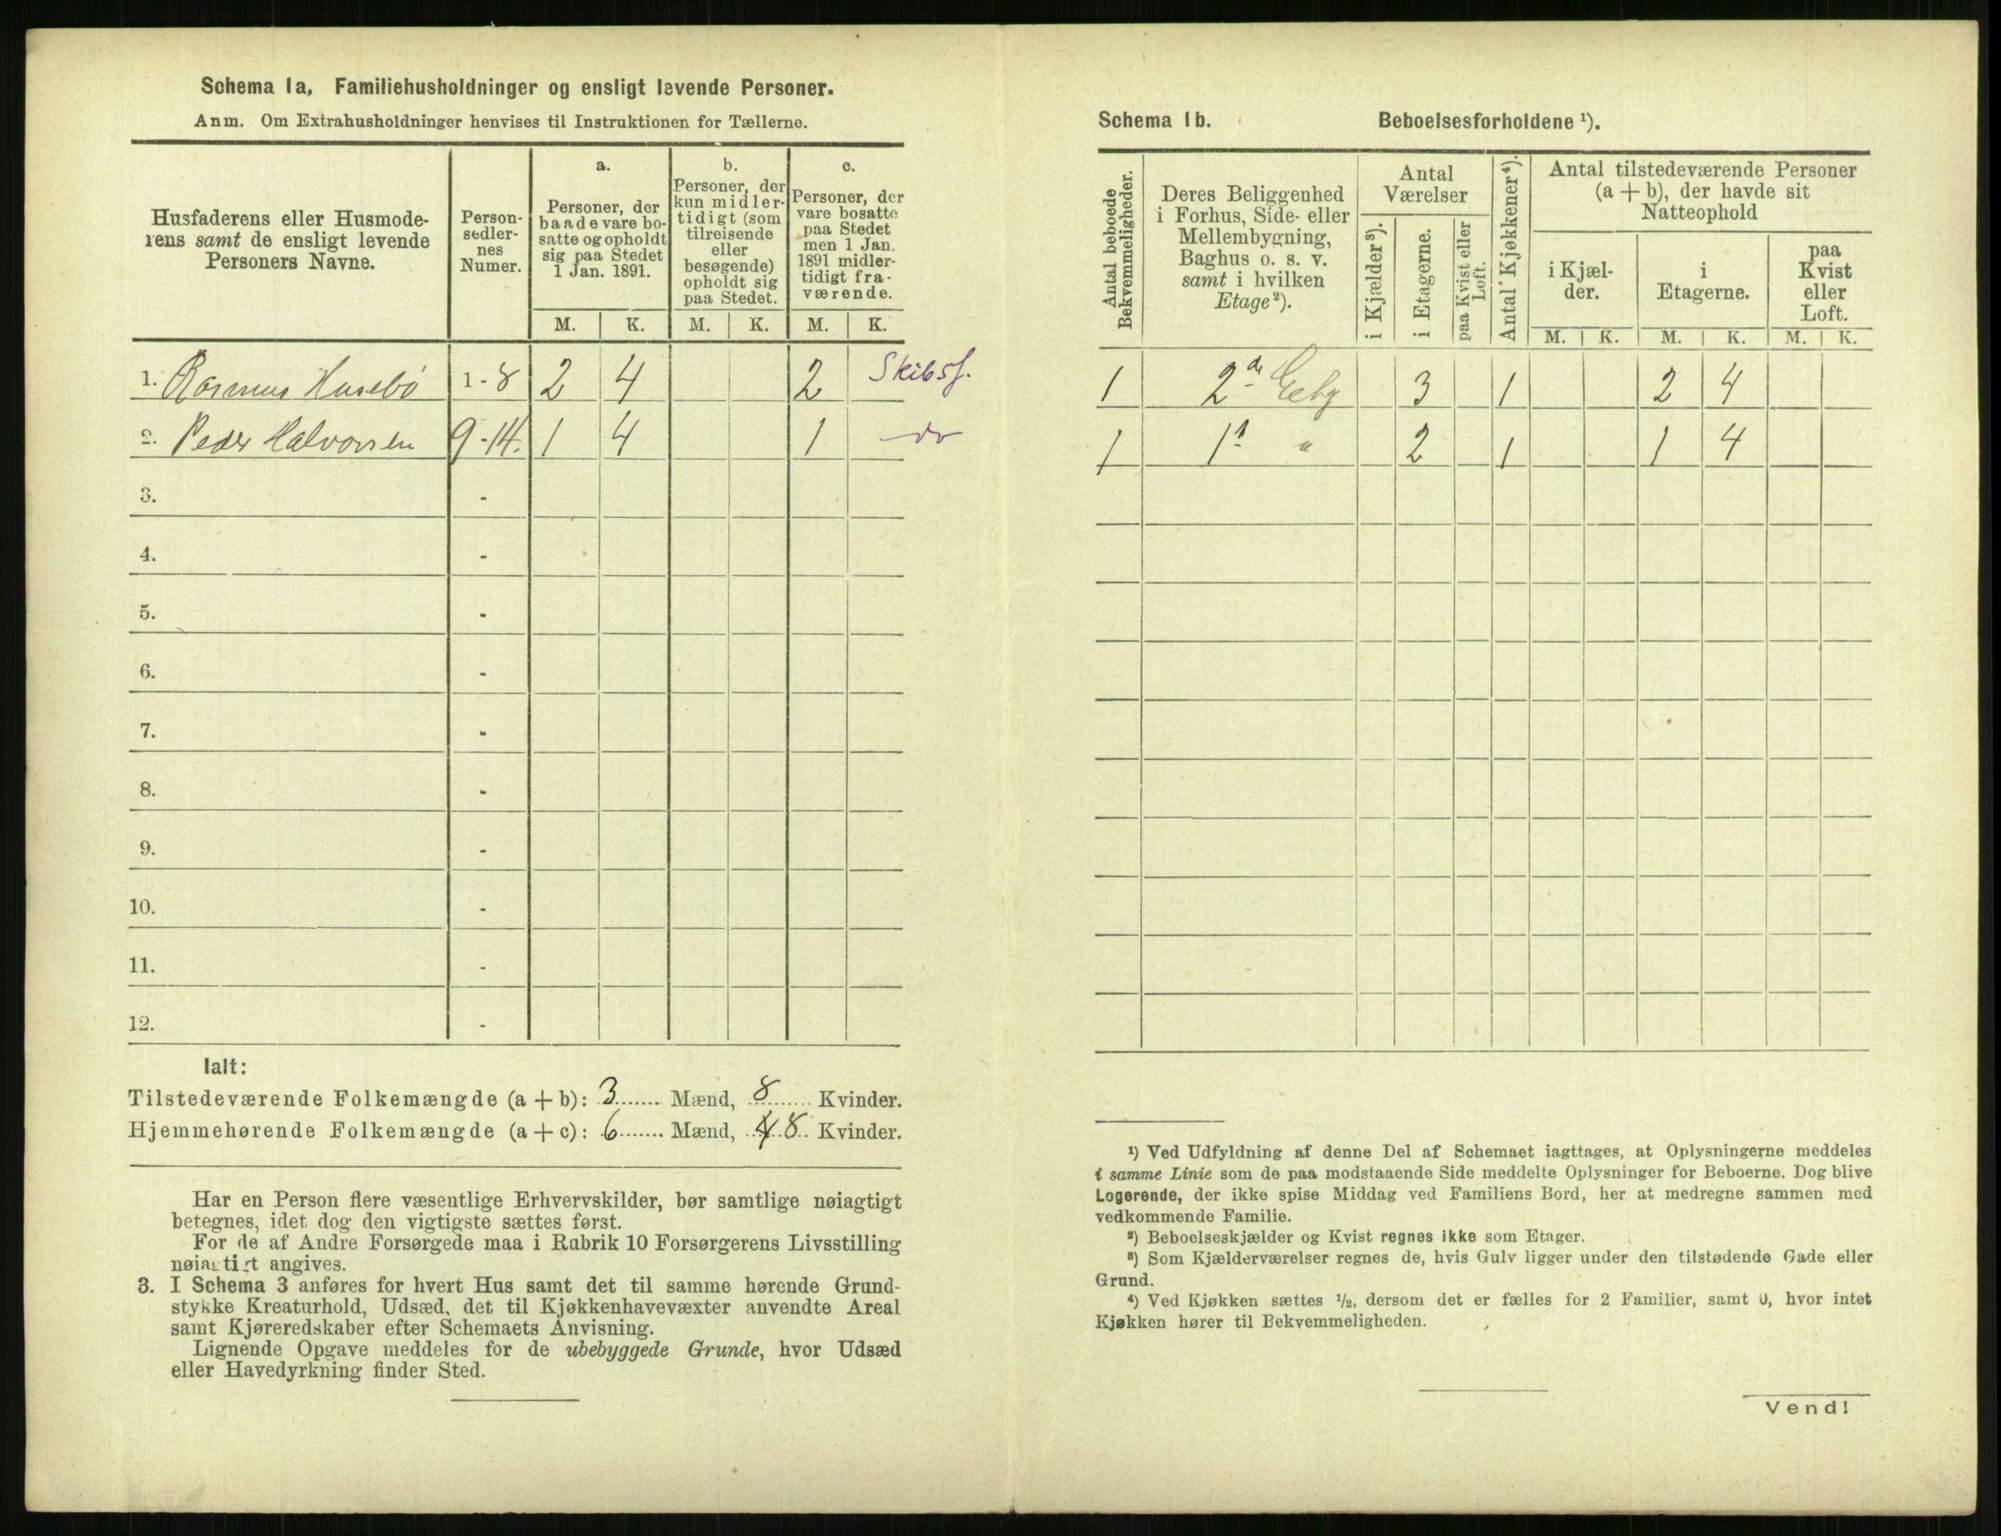 Schema 1a, Familiehusholdninger og ensligt levende Personer.
Anm. Om Extrahusholdninger henvises til Instruktionen for Tællerne.
Husfaderens eller Husmoderens samt de ensligt levende Personers Navne.
Personsedlernes Numer.
a.
Personer, der baade vare bosatte og opholdt sig paa Stedet 1 Jan. 1891.
b.
Personer, der kun midlertidigt (som tilreisende eller besøgende) opholdt sig paa Stedet.
c.
Personer, der vare bosatte paa Stedet men 1 Jan. 1891 midlertidigt fraværende.
M. K. M. K. M. K.
1. Rasmus Husebö 1-8 2 4 2 Skibsf.
2. Peder Halvorsen 9-14. 1 4 1 do
3. -
4. -
5. -
6. -
7. -
8. -
9. -
10. -
11. -
12. -
Ialt:
Tilstedeværende Folkemængde (a + b): 3 Mænd, 8 Kvinder.
Hjemmehørende Folkemængde (a + c): 6 Mænd, 8 Kvinder.
Har en Person flere væsentlige Erhvervskilder, bør samtlige nøiagtigt
betegnes, idet dog den vigtigste sættes først.
For de af Andre Forsørgede maa i Rubrik 10 Forsørgerens Livsstilling
nøiagtigt angives.
3. I Schema 3 anføres for hvert Hus samt det til samme hørende Grund-
stykke Kreaturhold, Udsæd, det til Kjøkkenhavevæxter anvendte Areal
samt Kjøreredskaber efter Schemaets Anvisning.
Lignende Opgave meddeles for de ubebyggede Grunde, hvor Udsæd
eller Havedyrkning finder Sted.
Schema 1b. Beboelsesforholdene ¹).
Antal beboede Bekvemmeligheder.
Deres Beliggenhed i Forhus, Side- eller Mellembygning, Baghus o. s. v. samt i hvilken Etage²).
Antal Værelser
i Kjælder³).
i Etagerne.
paa Kvist eller Loft.
Antal Kjøkkener⁴).
Antal tilstedeværende Personer (a + b), der havde sit Natteophold
i Kjælder.
i Etagerne.
paa Kvist eller Loft.
M. K. M. K. M. K.
1 2de 3 1 2 4
1 1ste " 2 1 1 4
¹) Ved Udfyldning af denne Del af Schemaet iagttages, at Oplysningerne meddeles
i samme Linie som de paa modstaaende Side meddelte Oplysninger for Beboerne. Dog blive
Logerende, der ikke spise Middag ved Familiens Bord, her at medregne sammen med
vedkommende Familie.
²) Beboelseskjælder og Kvist regnes ikke som Etager.
³) Som Kjælderværelser regnes de, hvis Gulv ligger under den tilstødende Gade eller
Grund.
⁴) Ved Kjøkken sættes ½, dersom det er fælles for 2 Familier, samt 0, hvor intet
Kjøkken hører til Bekvemmeligheden.
Vend!